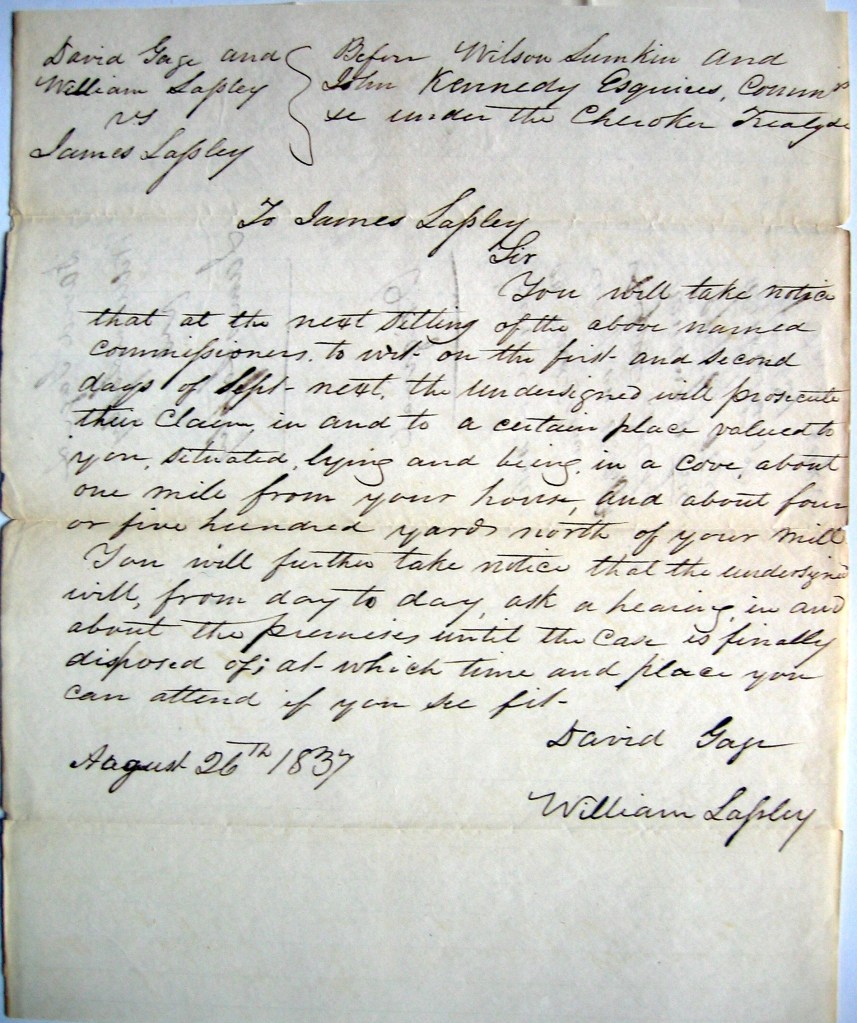 David Gage and
William Lassley
vs
James Lassley
Before Wilson Lumkin and
John Kennedy Esquires, Commrs
&c under the Cherokee Treaty &c
To James Lassley
Sir
You will take notice
that at the next sitting of the above named
commissioners, to wit- on the first and second
days of Sept- next, the undersigned will prosecute
their claim, in and to a certain place valued to
you, situated, lying and being, in a cove, about
one mile from your house, and about four
or five hundred yards north of your mill
You will further take notice that the undersigned
will, from day to day, ask a hearing, in and
about the premises until the case is finally
disposed of; at which time and place you
can attend if you see fit-
David Gage
August 26th 1837
William Lassley